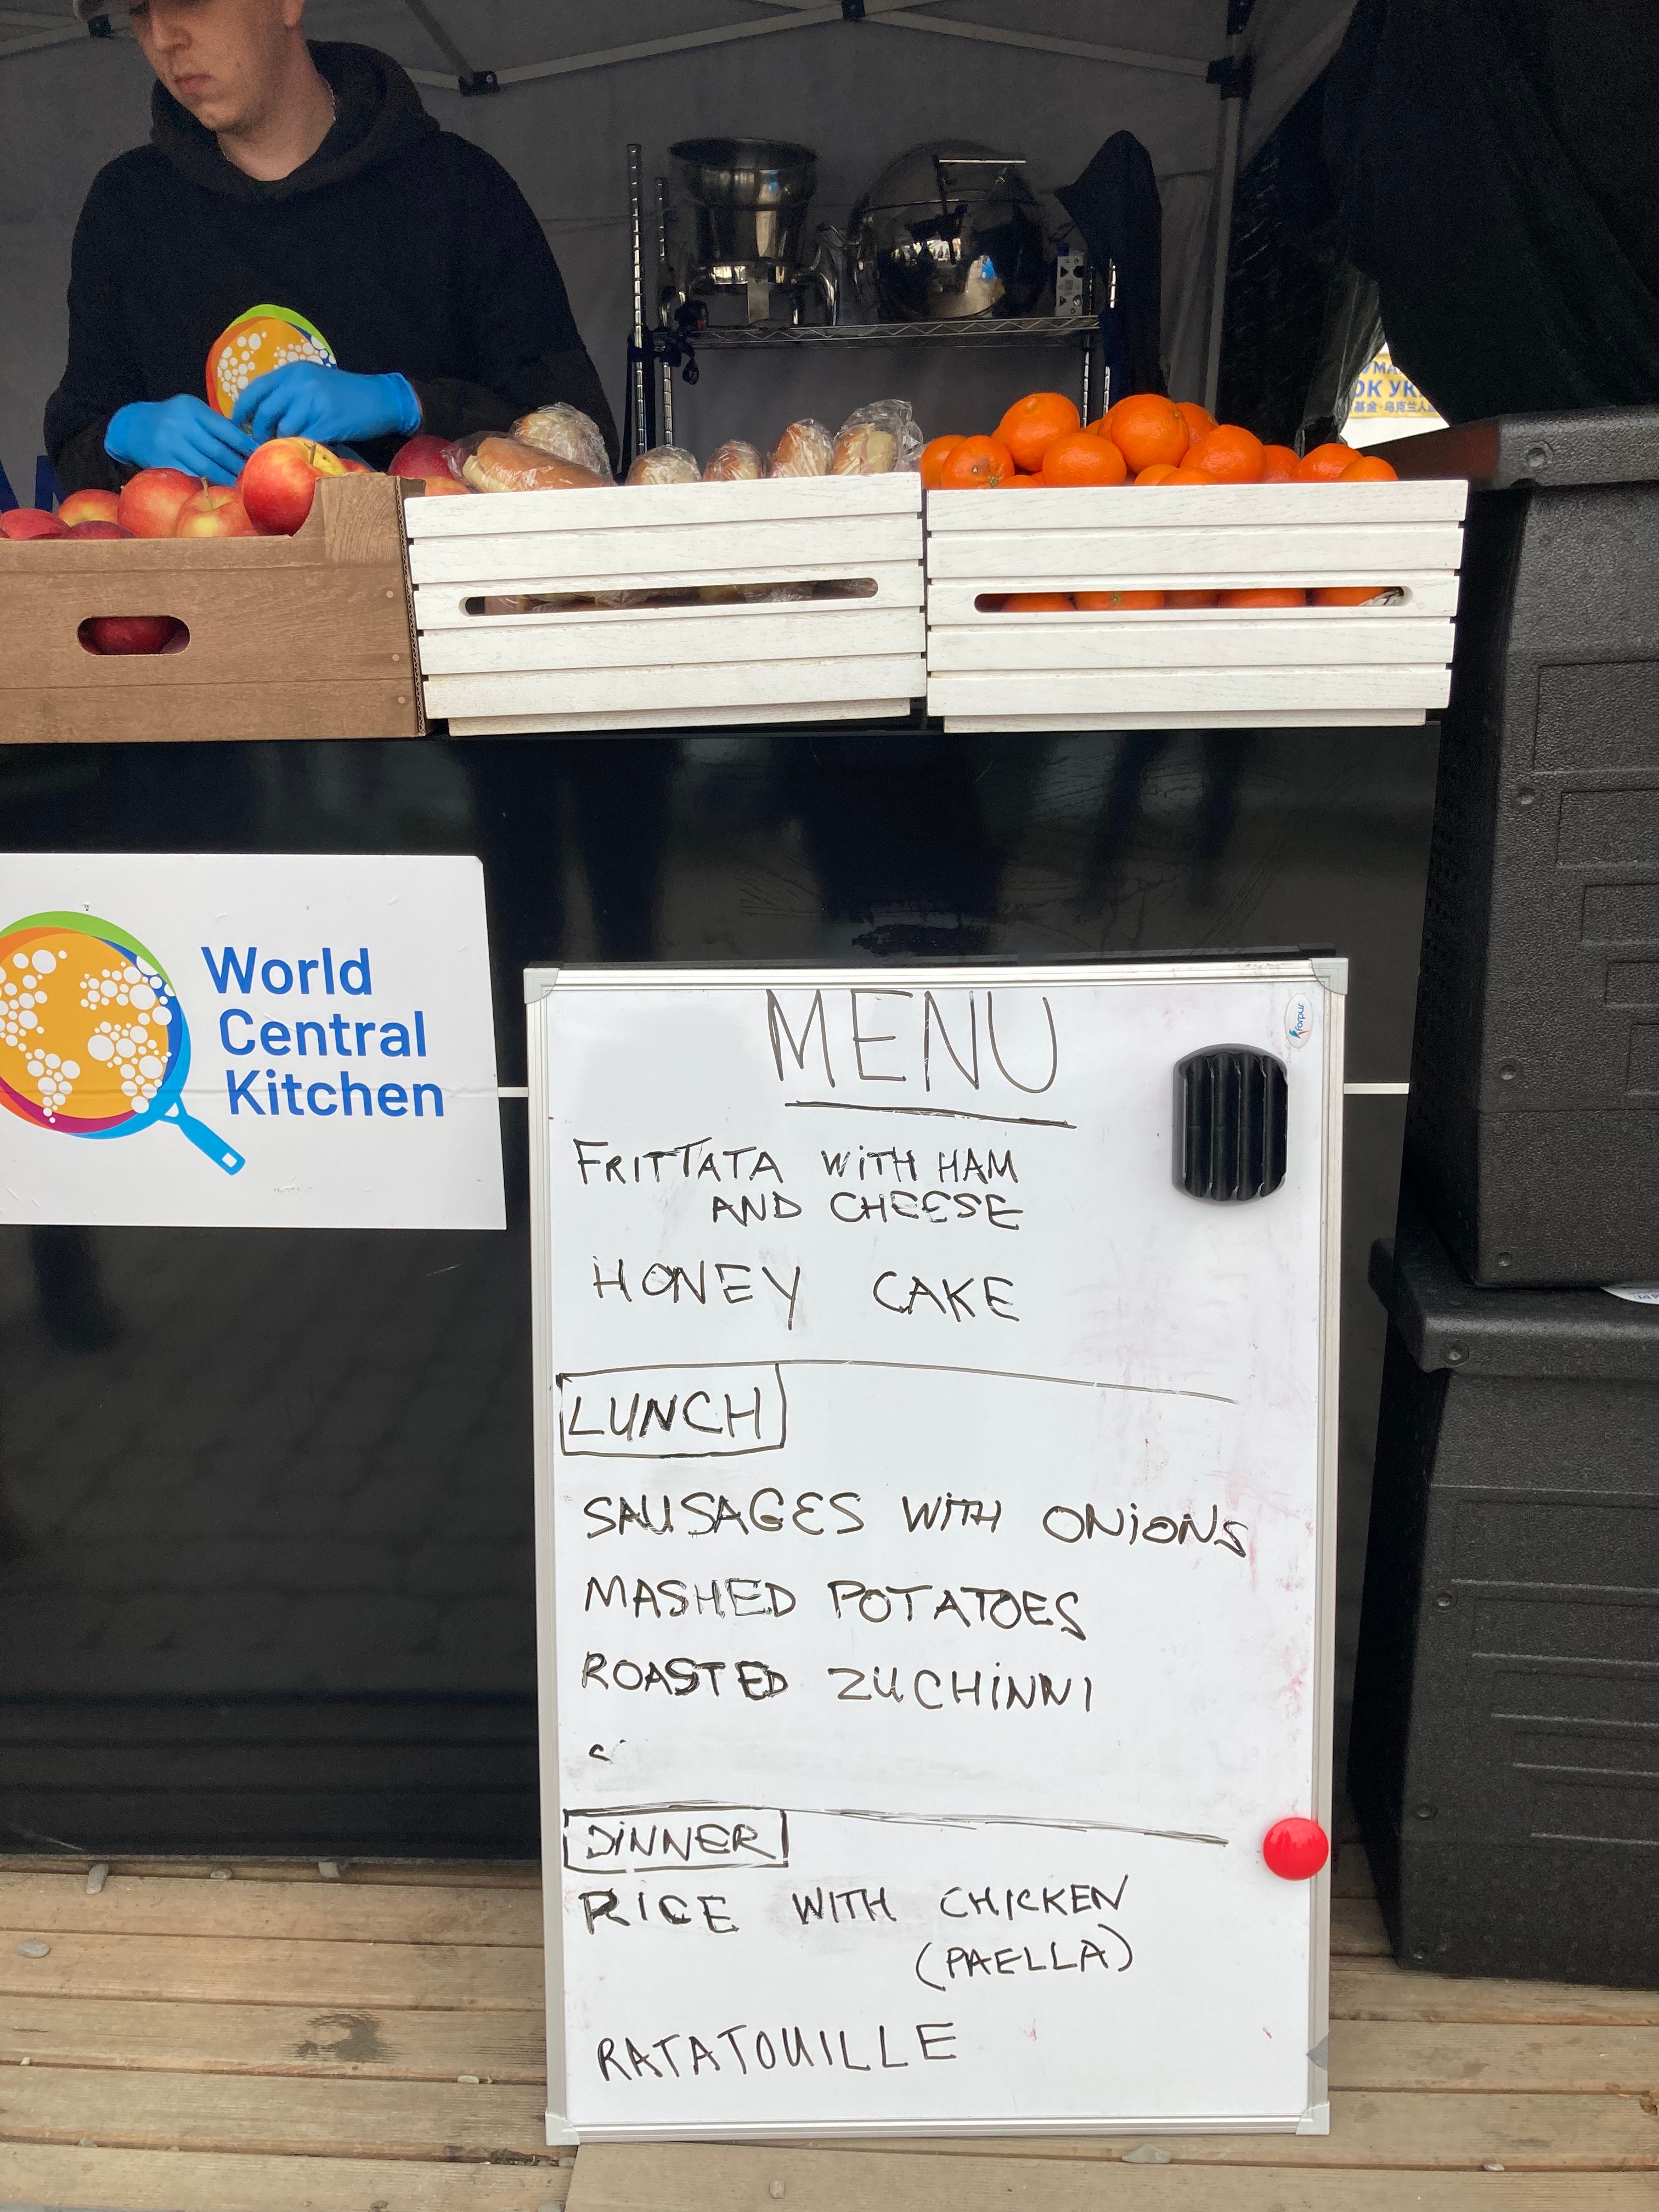 ОК УК
基金·乌克兰人
World
Central
Kitchen
forpus
MENU
FRITTATA WITH HAM
AND CHEESE
HONEY CAKE
LUNCH
SAUSAGES WITH ONIONS
MASHED POTATOES
ROASTED ZUCHINNI
DINNER
RICE WITH CHICKEN
(PAELLA)
RATATOUILLE